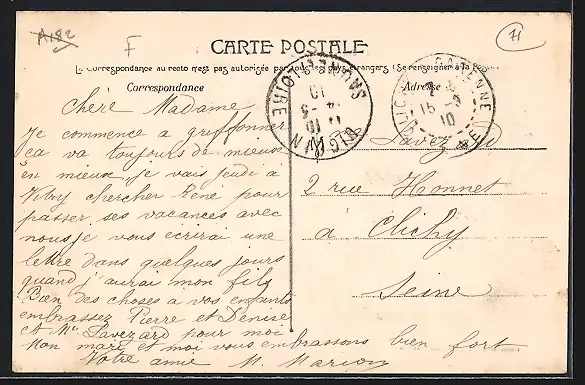 A182
F
71
CARTE POSTALE
La Correspondance au recto n'est pas autorisée par tous les pays étrangers (Se renseigner à la
Correspondance
Adresse
SAÔNE-ET-LOIRE
14 - 5
10
GARENNE
15 - 8
10
SEINE
Chère Madame
Je commence a griffonner
ça va toujours de mieux
en mieux, je vais jeudi a
Vitry chercher René pour
passer ses vacances avec
nous, je vous écrirai une
lettre dans quelques jours
quand j'aurai mon fils
Bien des choses a vos enfants
embrassez Pierre et Denise
et Mr Lavezard pour moi
Mon mari et moi vous embrassons bien fort
Votre amie M. Marion
Lavezard
2 rue Honnet
à Clichy
Seine